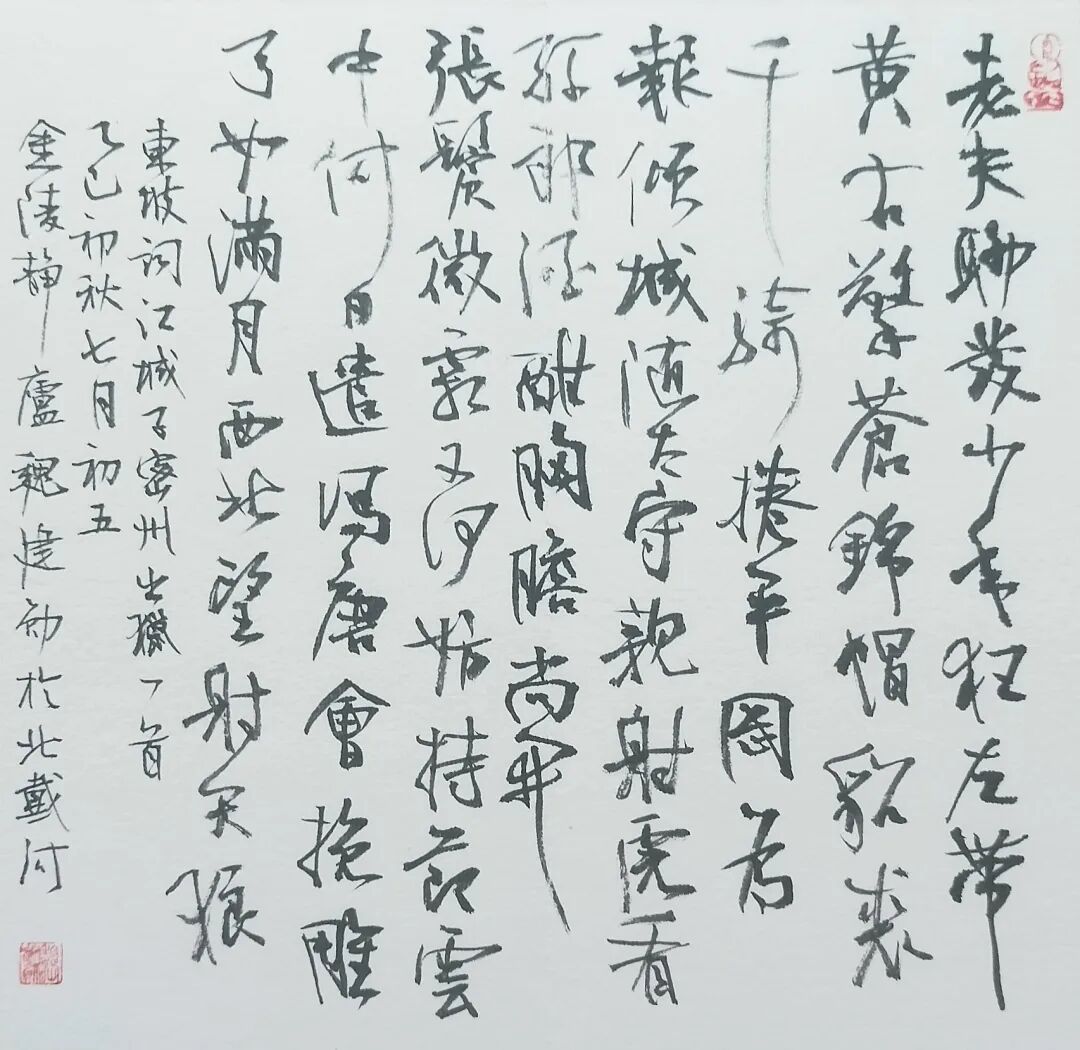 老夫聊發少年狂左牽
黄右擎蒼錦帽貂裘
千騎捲平岡為
報傾城随太守親射虎看
孫郎酒酣胸膽尚開
張鬢微霜又何妨持節雲
中何日遣馮唐會挽雕
弓如滿月西北望射天狼
東坡詞江城子密州出獵一首
乙巳初秋七月初五
金陵靜廬魏建於北戴河